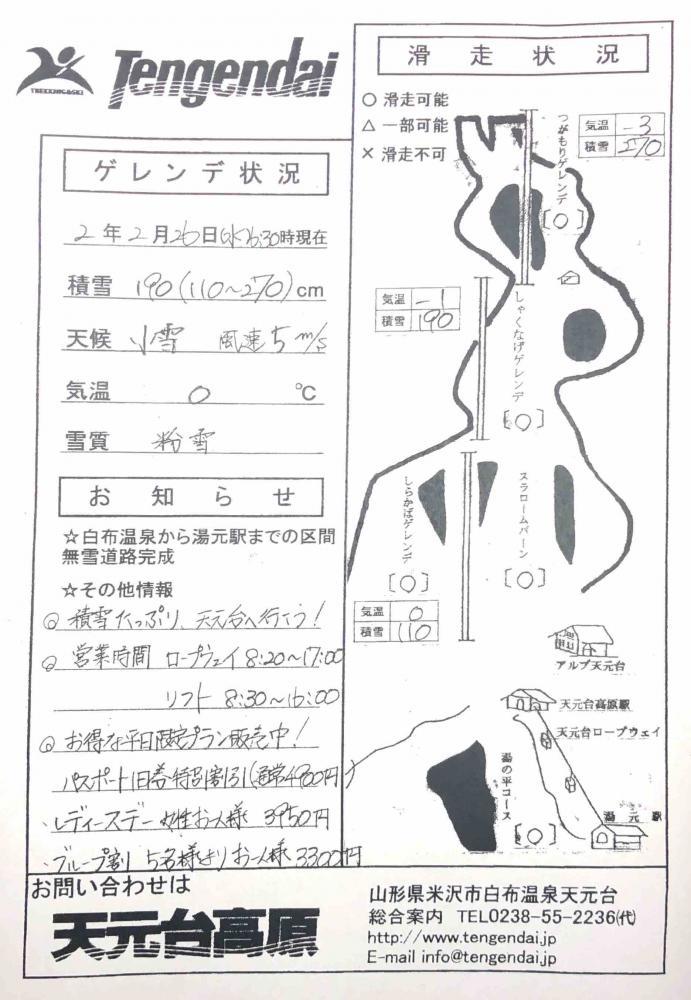 TREKKING&SKI
Tengendai
ゲレンデ状況
2年2月26日(水)6:30時現在
積雪 190(110～270)cm
天候 小雪 風速5m/s
気温 0 ℃
雪質 粉雪
お知らせ
☆白布温泉から湯元駅までの区間
無雪道路完成
☆その他情報
◎積雪たっぷり、天元台へ行こう!
◎営業時間 ロープウェイ 8:20～17:00
リフト 8:30～16:00
◎お得な平日限定プラン販売中!
パスポート1日券特別割引(通常4980円)
・レディースデー 女性お一人様 3950円
・グループ割 5名様よりお一人様 3300円
滑走状況
○ 滑走可能
△ 一部可能
× 滑走不可
気温 -3
積雪 270
つがもりゲレンデ
[○]
気温 -1
積雪 190
しゃくなげゲレンデ
[○]
しらかばゲレンデ
[○]
スラロームバーン
[○]
気温 0
積雪 110
アルブ天元台
天元台高原駅
天元台ロープウェイ
湯の平コース
[○]
湯元駅
お問い合わせは
天元台高原
山形県米沢市白布温泉天元台
総合案内 TEL0238-55-2236㈹
http://www.tengendai.jp
E-mail info@tengendai.jp